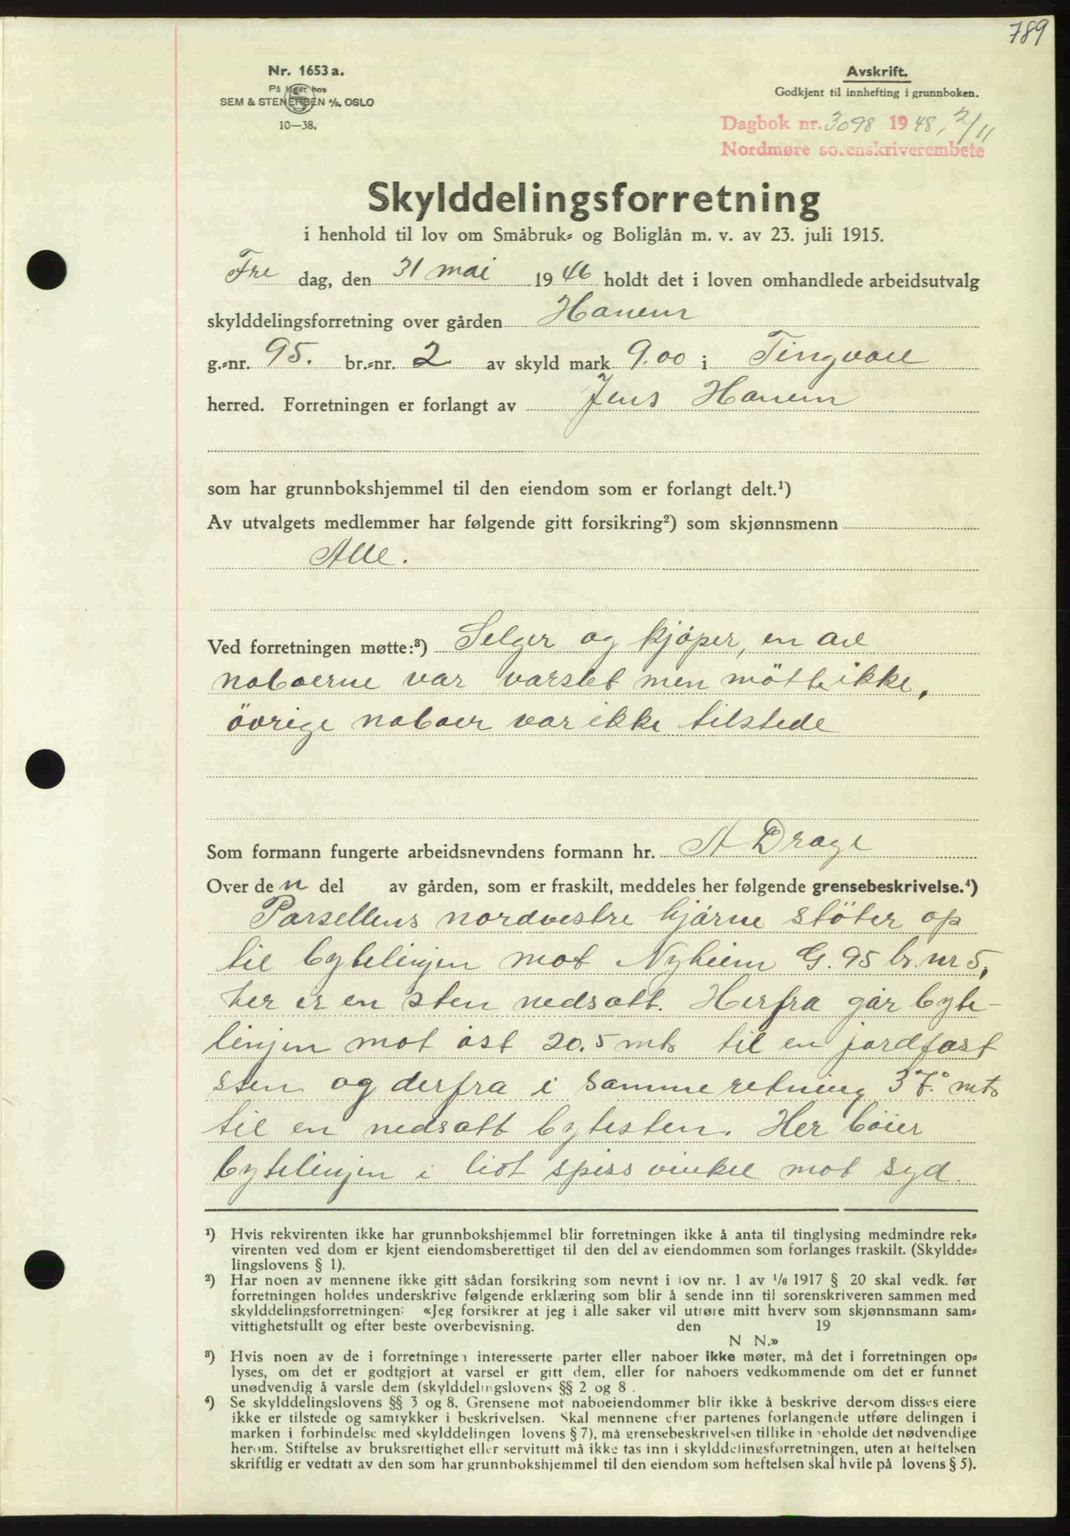 789
Nr. 1653 a.
På lager hos
SEM & STENERSEN A/S, OSLO
10—38.
Avskrift.
Godkjent til innhefting i grunnboken.
Dagbok nr. 3098 1948, 2/11
Nordmøre sorenskriverembete
Skylddelingsforretning
i henhold til lov om Småbruk- og Boliglån m. v. av 23. juli 1915.
Fre dag, den 31 mai 1946 holdt det i loven omhandlede arbeidsutvalg
skylddelingsforretning over gården Hanem
g.-nr. 95. br.-nr. 2 av skyld mark 9.00 i Tingvoll
herred. Forretningen er forlangt av Jens Hanem
som har grunnbokshjemmel til den eiendom som er forlangt delt.¹)
Av utvalgets medlemmer har følgende gitt forsikring²) som skjønnsmenn
Alle.
Ved forretningen møtte:³) Selger og kjøper, en av
naboerne var varslet men mötte ikke,
övrige naboer var ikke tilstede
Som formann fungerte arbeidsnevndens formann hr. A Drage
Over den del av gården, som er fraskilt, meddeles her følgende grensebeskrivelse.⁴)
Parsellens nordvestre hjørne stöter op
til bytelinjen mot Nyheim G. 95 br. nr 5,
her er en sten nedsatt. Herfra går byte-
linjen mot öst 20.5 mtr til en jordfast
sten og derfra i samme retning 37.º mtr
til en nedsatt bytesten. Her böier
bytelinjen i lidt spiss vinkel mot syd.
¹) Hvis rekvirenten ikke har grunnbokshjemmel blir forretningen ikke å anta til tinglysing medmindre rek-
virenten ved dom er kjent eiendomsberettiget til den del av eiendommen som forlanges fraskilt. (Skyldde-
lingslovens § 1).
²) Har noen av mennene ikke gitt sådan forsikring som nevnt i lov nr. 1 av 1/6 1917 § 20 skal vedk. før
forretningen holdes underskrive følgende erklæring som blir å sende inn til sorenskriveren sammen med
skylddelingsforretningen: «Jeg forsikrer at jeg i alle saker vil utføre mitt hverv som skjønnsmann sam-
vittighetsfullt og efter beste overbevisning. den 19
N N.»
³) Hvis noen av de i forretningen interesserte parter eller naboer ikke møter, må det i forretningen op-
lyses, om det er godtgjort at varsel er gitt dem, eller for naboers vedkommende om det er funnet
unødvendig å varsle dem (skylddelingslovens §§ 2 og 8.
⁴) Se skylddelingslovens §§ 3 og 8. Grensene mot naboeiendommer blir ikke å beskrive dersom disses eiere
ikke er tilstede og samtykker i beskrivelsen. Skal mennene efter partenes forlangende utføre delingen i
marken i forbindelse med skylddelingen lovens § 7), må grensebeskrivelsen tillike inneholde det nødvendige
herom. Stiftelse av bruksrettighet eller servitutt må ikke tas inn i skylddelingsforretningen, uten at heftelsen
skriftlig er vedtatt av den som har grunnbokshjemmel til den eiendom som heftelsen skal hvile på lovens § 5).